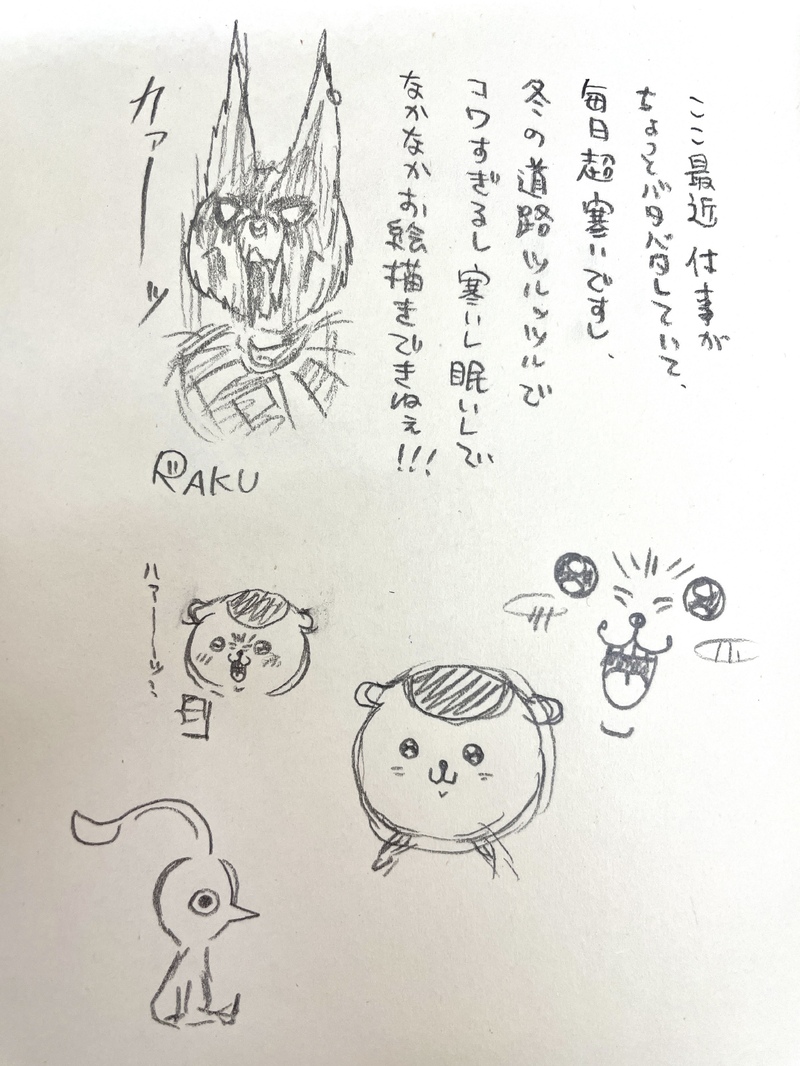 ここ最近仕事が
ちょっとバタバタしていて、
毎日超寒いですし、
冬の道路ツルッツルで
コワすぎるし寒いし眠いしで
なかなかお絵描きできねぇ!!!
カァーッ
RAKU
ハァーーッ…